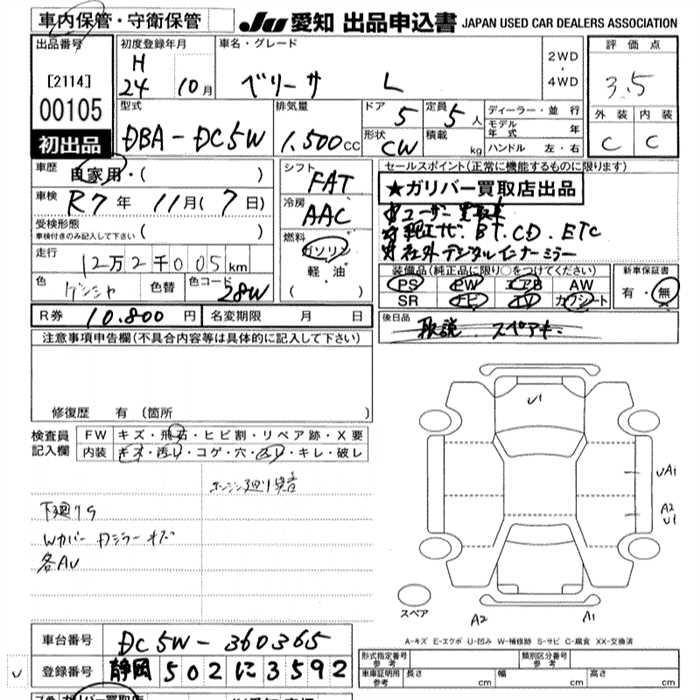 車内保管・守衛保管
JU 愛知 出品申込書 JAPAN USED CAR DEALERS ASSOCIATION
出品番号
[2114]
00105
初出品
初度登録年月
H
24 10月
車名・グレード
ベリーサ L
2WD
・
4WD
評価点
3.5
外装 内装
C C
型式
DBA-DC5W
排気量
1.500CC
ドア 5
形状 CW
定員 5人
積載 kg
ディーラー・並行
モデル年式 年
ハンドル 左・右
車歴 自家用・( )
車検 R7年 11月(7日)
受検形態
車検付きのみ記入して下さい ( )
走行
12万2千005km
色
色替
色コード
28W
シフト
FAT
冷房
AAC
燃料
ガソリン
軽油
( )
セールスポイント(正常に機能するものに限ります)
★ガリバー買取店出品
☆ユーザー買取車
☆純正ナビ. BT. CD. ETC
☆社外デジタルインナーミラー
装備品(純正品に限り○をつけてください)
PS PW エアB AW
SR ナビ TV カワシート
新車保証書
有・無
後日品
取説 スペアキー
R券 10.800円
名変期限 月 日
注意事項申告欄(不具合内容等は具体的に記入して下さい)
修復歴 有 (箇所 )
検査員
記入欄
FW キズ・飛石・ヒビ割・リペア跡・X要
内装 キズ・汚レ・コゲ・穴・スリ・キレ・破レ
下廻りS
各AU
U1
UA1
A2
U1
スペア
A2
A1
A-キズ E-エクボ U-凹み W-補修跡 S-サビ C-腐食 XX-交換済
車台番号 DC5W-360365
登録番号 静岡 502 に 3592
形式指定番号
参考
類別区分番号
参考
車庫証明用
参考
長さ cm
幅 cm
高さ cm